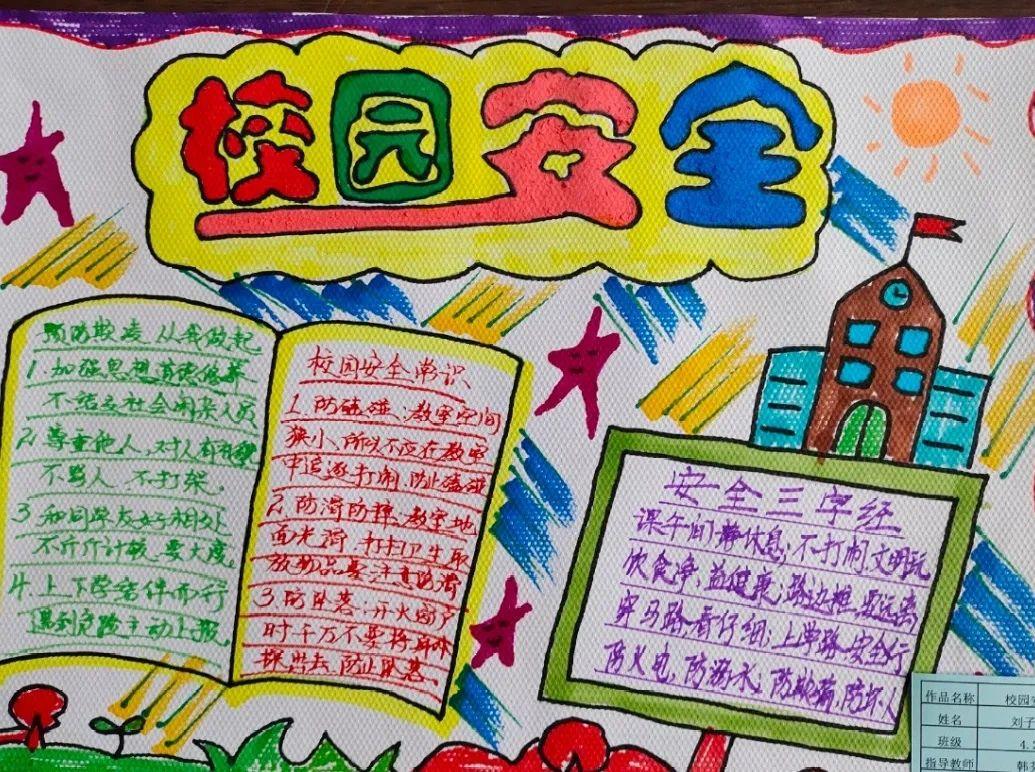 校园安全
预防欺凌 从我做起
1.加强思想道德修养
不结交社会闲杂人员
2.尊重他人,对人有礼貌
不骂人 不打架.
3 和同学友好相处
不斤斤计较,要大度.
4.上下学结伴而行
遇到危险主动上报.
校园安全常识
1.防磕碰:教室空间
狭小,所以不应在教室
中追逐打闹,防止磕碰
2.防滑防摔:教室地
面光滑,打扫卫生取
放物品要注意防滑
3.防坠落:开关窗户
时千万不要将身体
探出去,防止坠落.
安全三字经
课午间,静休息;不打闹,文明玩
饮食净,益健康;路边摊,要远离
穿马路,看仔细;上学路,安全行
防火电,防溺水;防欺骗,防坏人
作品名称 校园
姓名 刘子
班级 4.
指导教师 韩